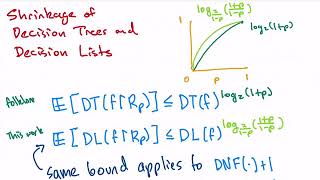 Shrinkage of
Decision Trees and
Decision Lists
1
log_{2/(1-p)}((1+p)/(1-p))
log₂(1+p)
0 p 1
folklore E[DT(f↾R_p)] ≤ DT(f)^{log₂(1+p)}
This work E[DL(f↾R_p)] ≤ DL(f)^{log_{2/(1-p)}((1+p)/(1-p))}
same bound applies to DNF(·)+1